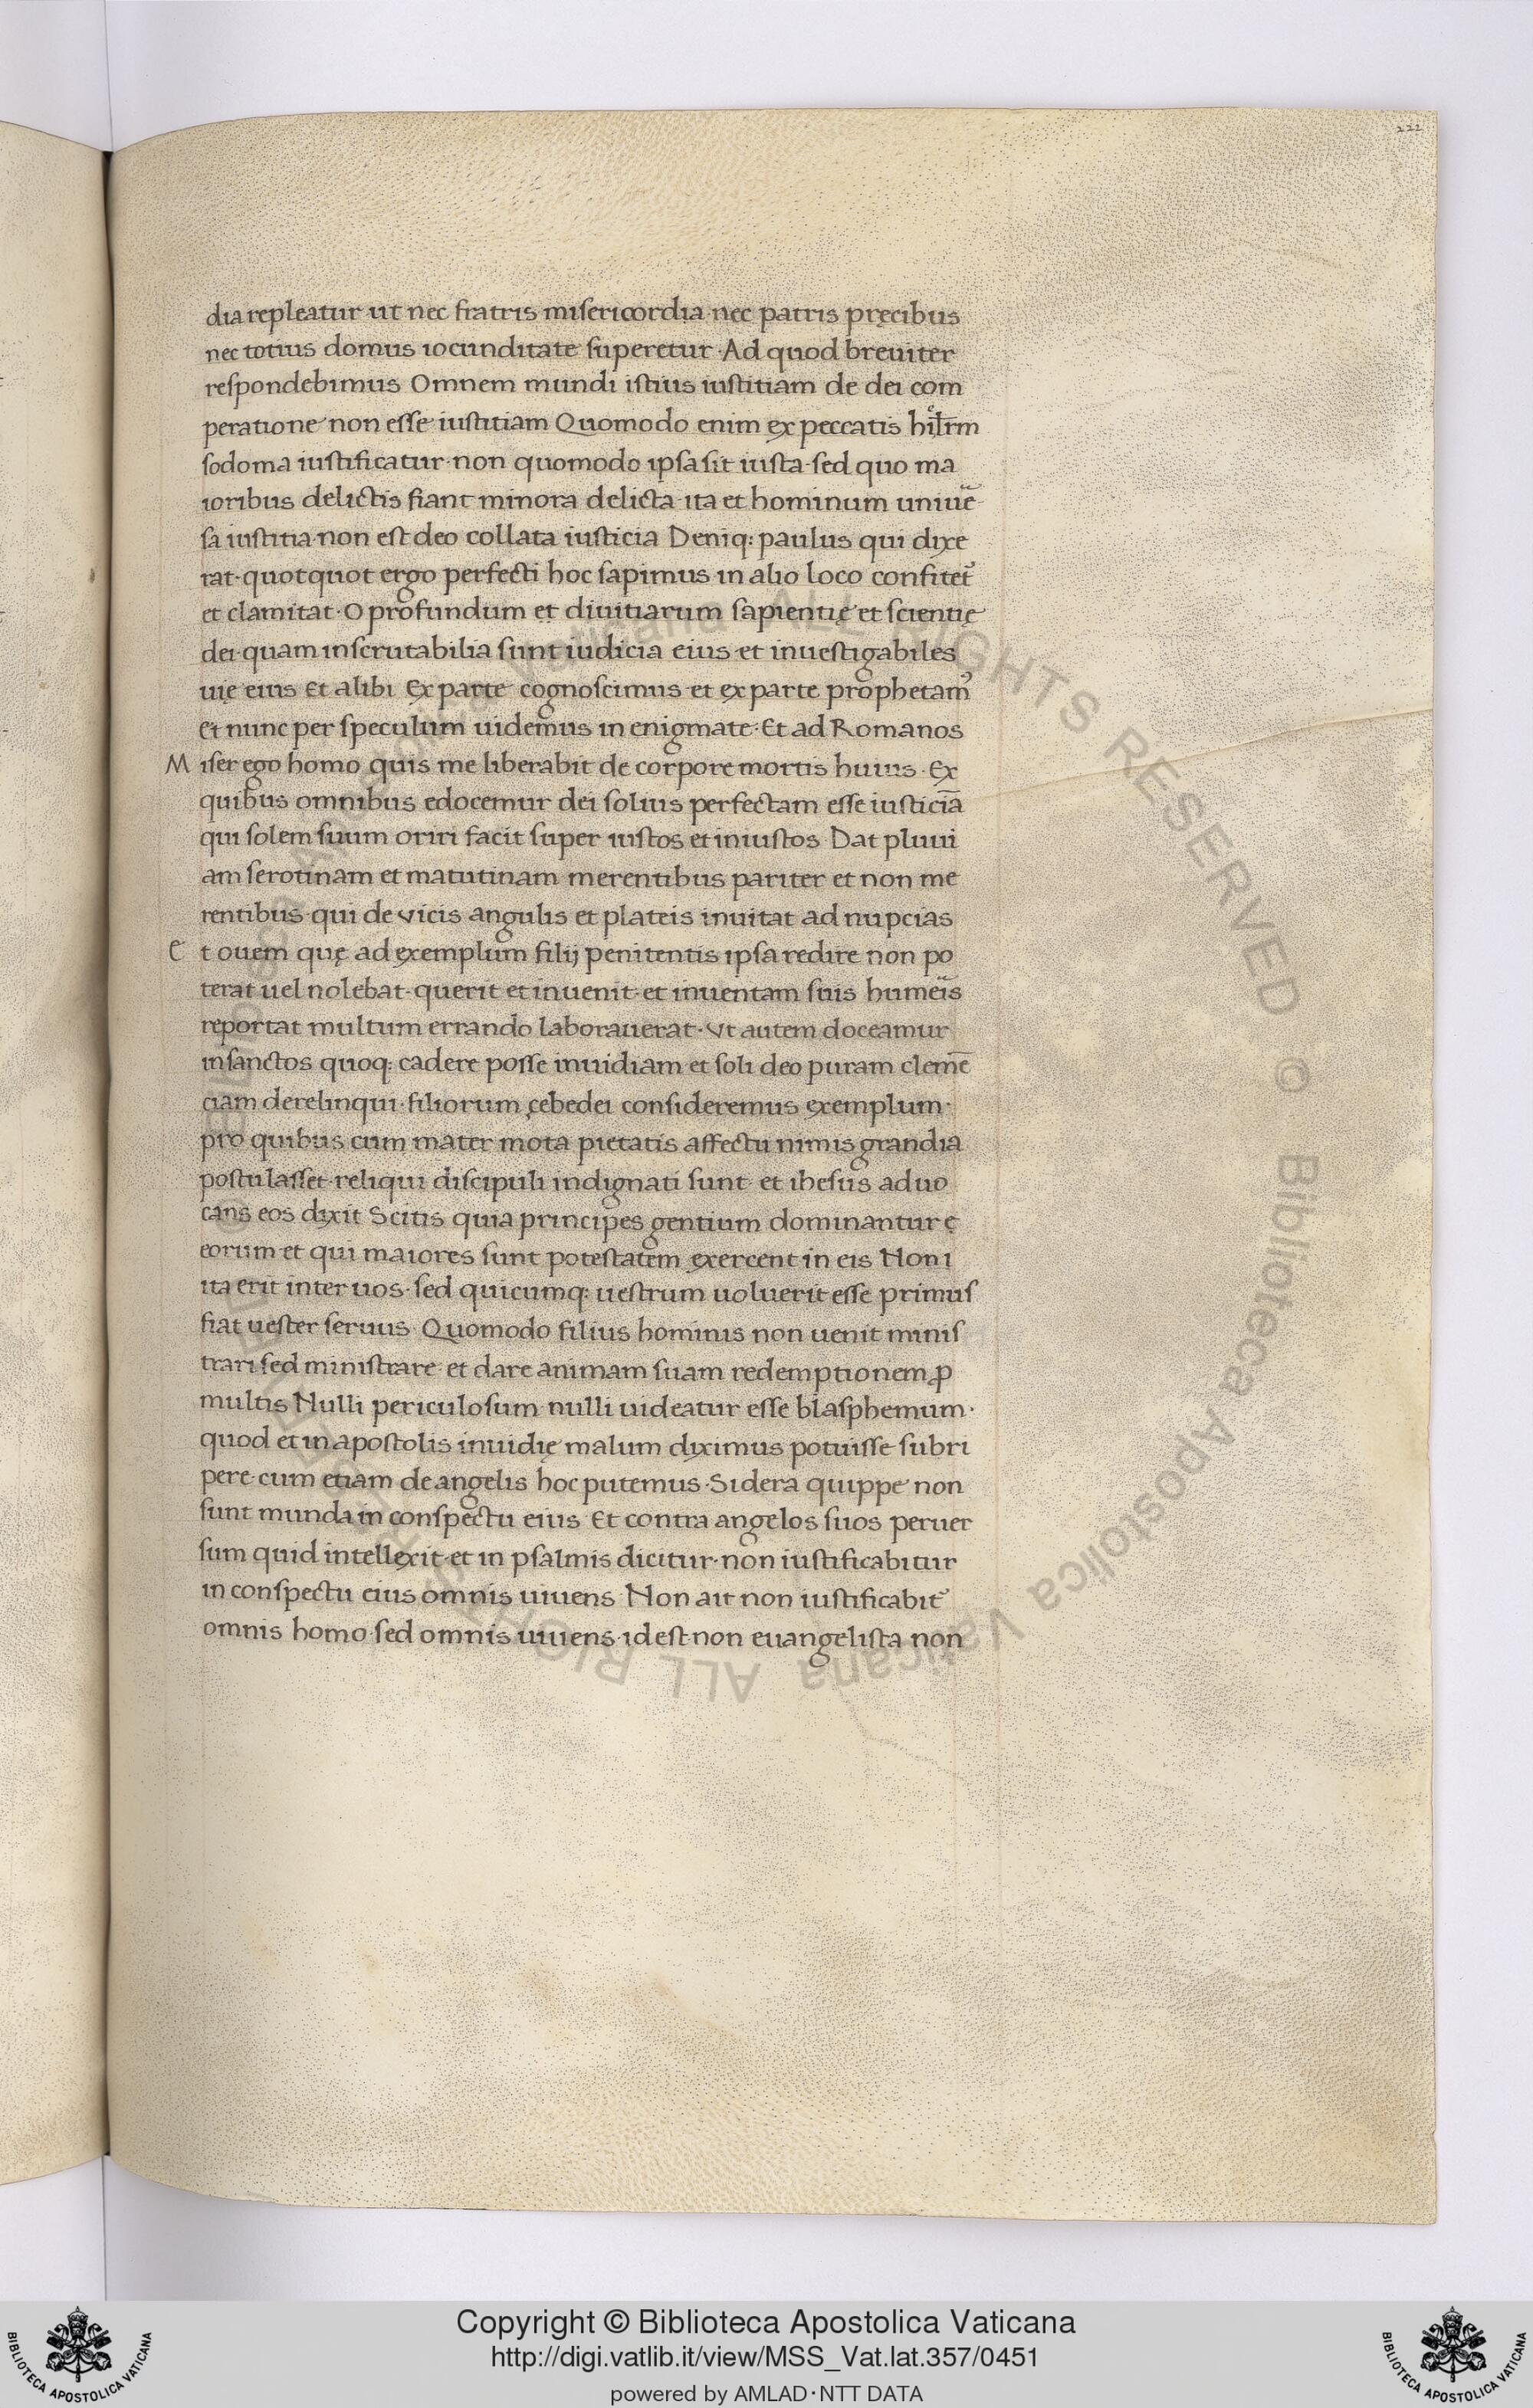 222
dia repleatur ut nec fratris misericordia nec patris pręcibus
nec totius domus iocunditate superetur · Ad quod breuiter
respondebimus Omnem mundi istius iustitiam de dei com
peratione non esse iustitiam Quomodo enim ex peccatis
sodoma iustificatur · non quomodo ipsa sit iusta · sed quo ma
ioribus delictis fiant minora delicta · ita et hominum uniuẽ
sa iustitia non est deo collata iusticia Deniq: paulus qui dixe
rat · quotquot ergo perfecti hoc sapimus in alio loco confitet᷑
et clamitat · O profundum et diuitiarum sapientię et scientię
dei · quam inscrutabilia sunt iudicia eius et inuestigabiles
uię eius Et alibi Ex parte cognoscimus et ex parte prophetam᾿
Et nunc per speculum uidemus in enigmate · Et ad Romanos
Miser ego homo quis me liberabit de corpore mortis huius · Ex
quibus omnibus edocemur dei solius perfectam esse iusticiā
qui solem suum oriri facit super iustos et iniustos Dat pluui
am serotinam et matutinam merentibus pariter et non me
rentibus · qui de vicis angulis et plateis inuitat ad nupcias
Et ouem quę ad exemplum filij penitentis ipsa redire non po
terat uel nolebat · querit et inuenit · et inuentam suis humeris
reportat multum errando laborauerat · vt autem doceamur
in sanctos quoq: cadere posse inuidiam et soli deo puram clemē
ciam derelinqui · filiorum çebedei consideremus exemplum ·
pro quibus cum mater mota pietatis affectu nimis grandia
postulasset · reliqui discipuli indignati sunt et ihesus aduo
cans eos dixit Scitis quia principes gentium dominantur ę
eorum et qui maiores sunt potestatem exercent in eis Non i
ita erit inter uos · sed quicumq: uestrum uoluerit esse primus
fiat uester seruus Quomodo filius hominis non uenit minis
trari sed ministrare et dare animam suam redemptionem ꝓ
multis Nulli periculosum nulli uideatur esse blasphemum ·
quod et in apostolis inuidię malum diximus potuisse subri
pere · cum etiam de angelis hoc putemus · Sidera quippe non
sunt munda in conspectu eius Et contra angelos suos peruer
sum quid intellexit · et in psalmis dicitur · non iustificabitur
in conspectu eius omnis uiuens Non ait non iustificabit᷑
omnis homo · sed omnis uiuens · id est · non euangelista non
Copyright © Biblioteca Apostolica Vaticana
http://digi.vatlib.it/view/MSS_Vat.lat.357/0451
powered by AMLAD · NTT DATA
BIBLIOTECA APOSTOLICA VATICANA
BIBLIOTECA APOSTOLICA VATICANA